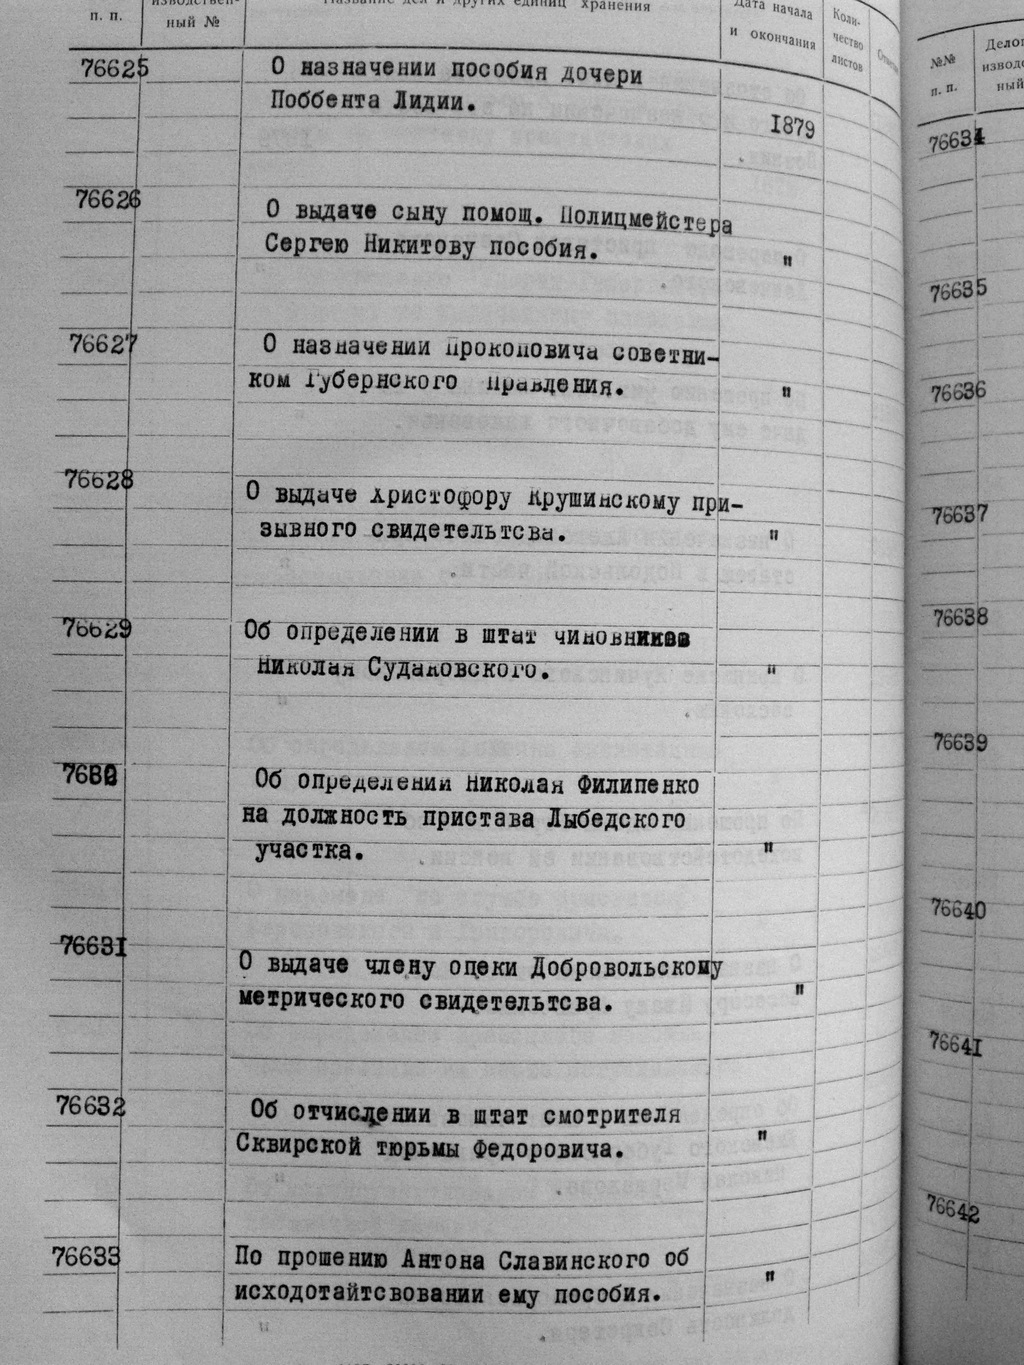 п. п.
ный №
Название дел и других единиц хранения
Дата начала
и окончания
Коли-
чество
листов
76625
О назначении пособия дочери
Поббента Лидии.
1879
76626
О выдаче сыну помощ. Полицмейстера
Сергею Никитову пособия.
"
76627
О назначении Прокоповича советни-
ком Губернского Правления.
"
76628
О выдаче Христофору Крушинскому при-
зывного свидетельтсва.
"
76629
Об определении в штат чиновников
Николая Судаковского.
"
Об определении Николая Филипенко
на должность пристава Лыбедского
участка.
"
76631
О выдаче члену опеки Добровольскому
метрического свидетельтсва.
"
76632
Об отчислении в штат смотрителя
Сквирской тюрьмы Федоровича.
"
76633
По прошению Антона Славинского об
исходотайтсвовании ему пособия.
"
№№
п. п.
ный
76634
76635
76636
76637
76638
76639
76640
76641
76642